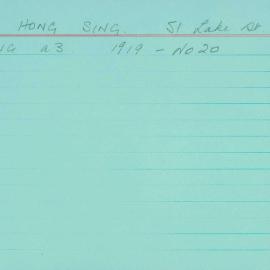 HONG SING. 51 Lake St
NG a3 1919 - No 20